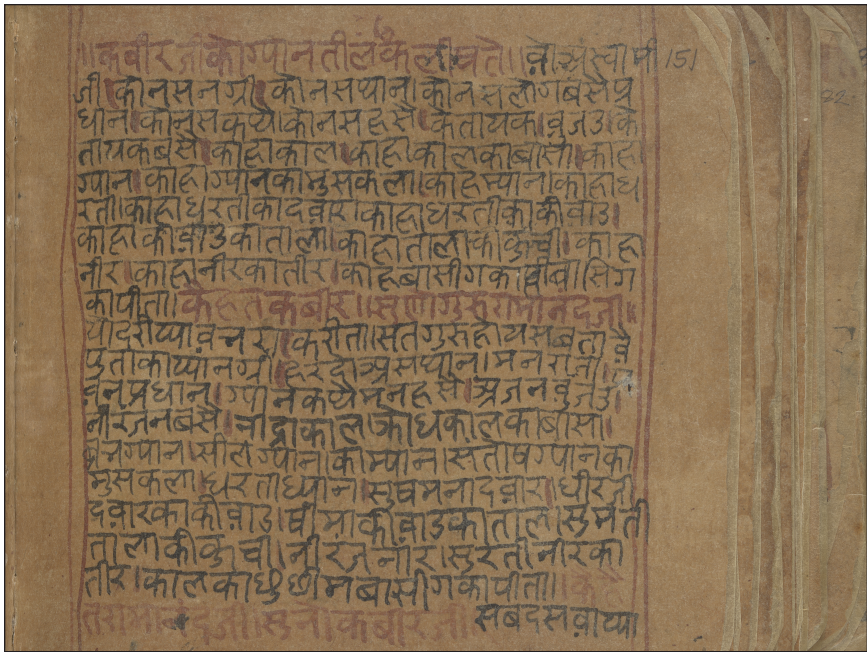 ॥कबीरजीकोग्पानतीलकलीषते॥वोअस्वामी 151
जी।कोनसनग्री।कोनसथान।कोनसलोगबसैप्र
धान।कोनसकथ्यै।कोनसहसै।कतायक।वुजउ।के
तायकबसै।काहाकाल।काहाकालकाबासा।काहा
ग्पान।काहाग्पानकामुसकला।काहम्पान।काहाध
रती।काहाधरतीकादवार।काहाधरतीकाकीवाउ।
काहाकीवाउकाताला।काहातालाकाकुची।काहा
नीर।काहानीरकातीर।काहबासीगका।बासिग
कापीता।केहतकबीर॥सुणगुरुरामानदजी॥
सतगुरुहोयसबतावै
मनराजा।
वनप्रधान।ग्पानकथ्यैमनहसै।अजनवुजउ।
नीरजनबसै।नीद्राकाल।क्रोधकालकाबासा।
ग्पान।सीलग्पान।काम्पान।सतोषग्पानका
मुसकला।धरताध्यान।सुषमनादवार।धीरजी
दवारकाकीवाउ।षीमाकीवाउकाताल।सुमती
तालाकीकुची।नीरजनीर।सुरतीनीरका
तीर।कालकाधुछीमबासीगकापीता॥कहे
तरामानंदजी॥सुनोकबीरजी।सबदसवाप्पा